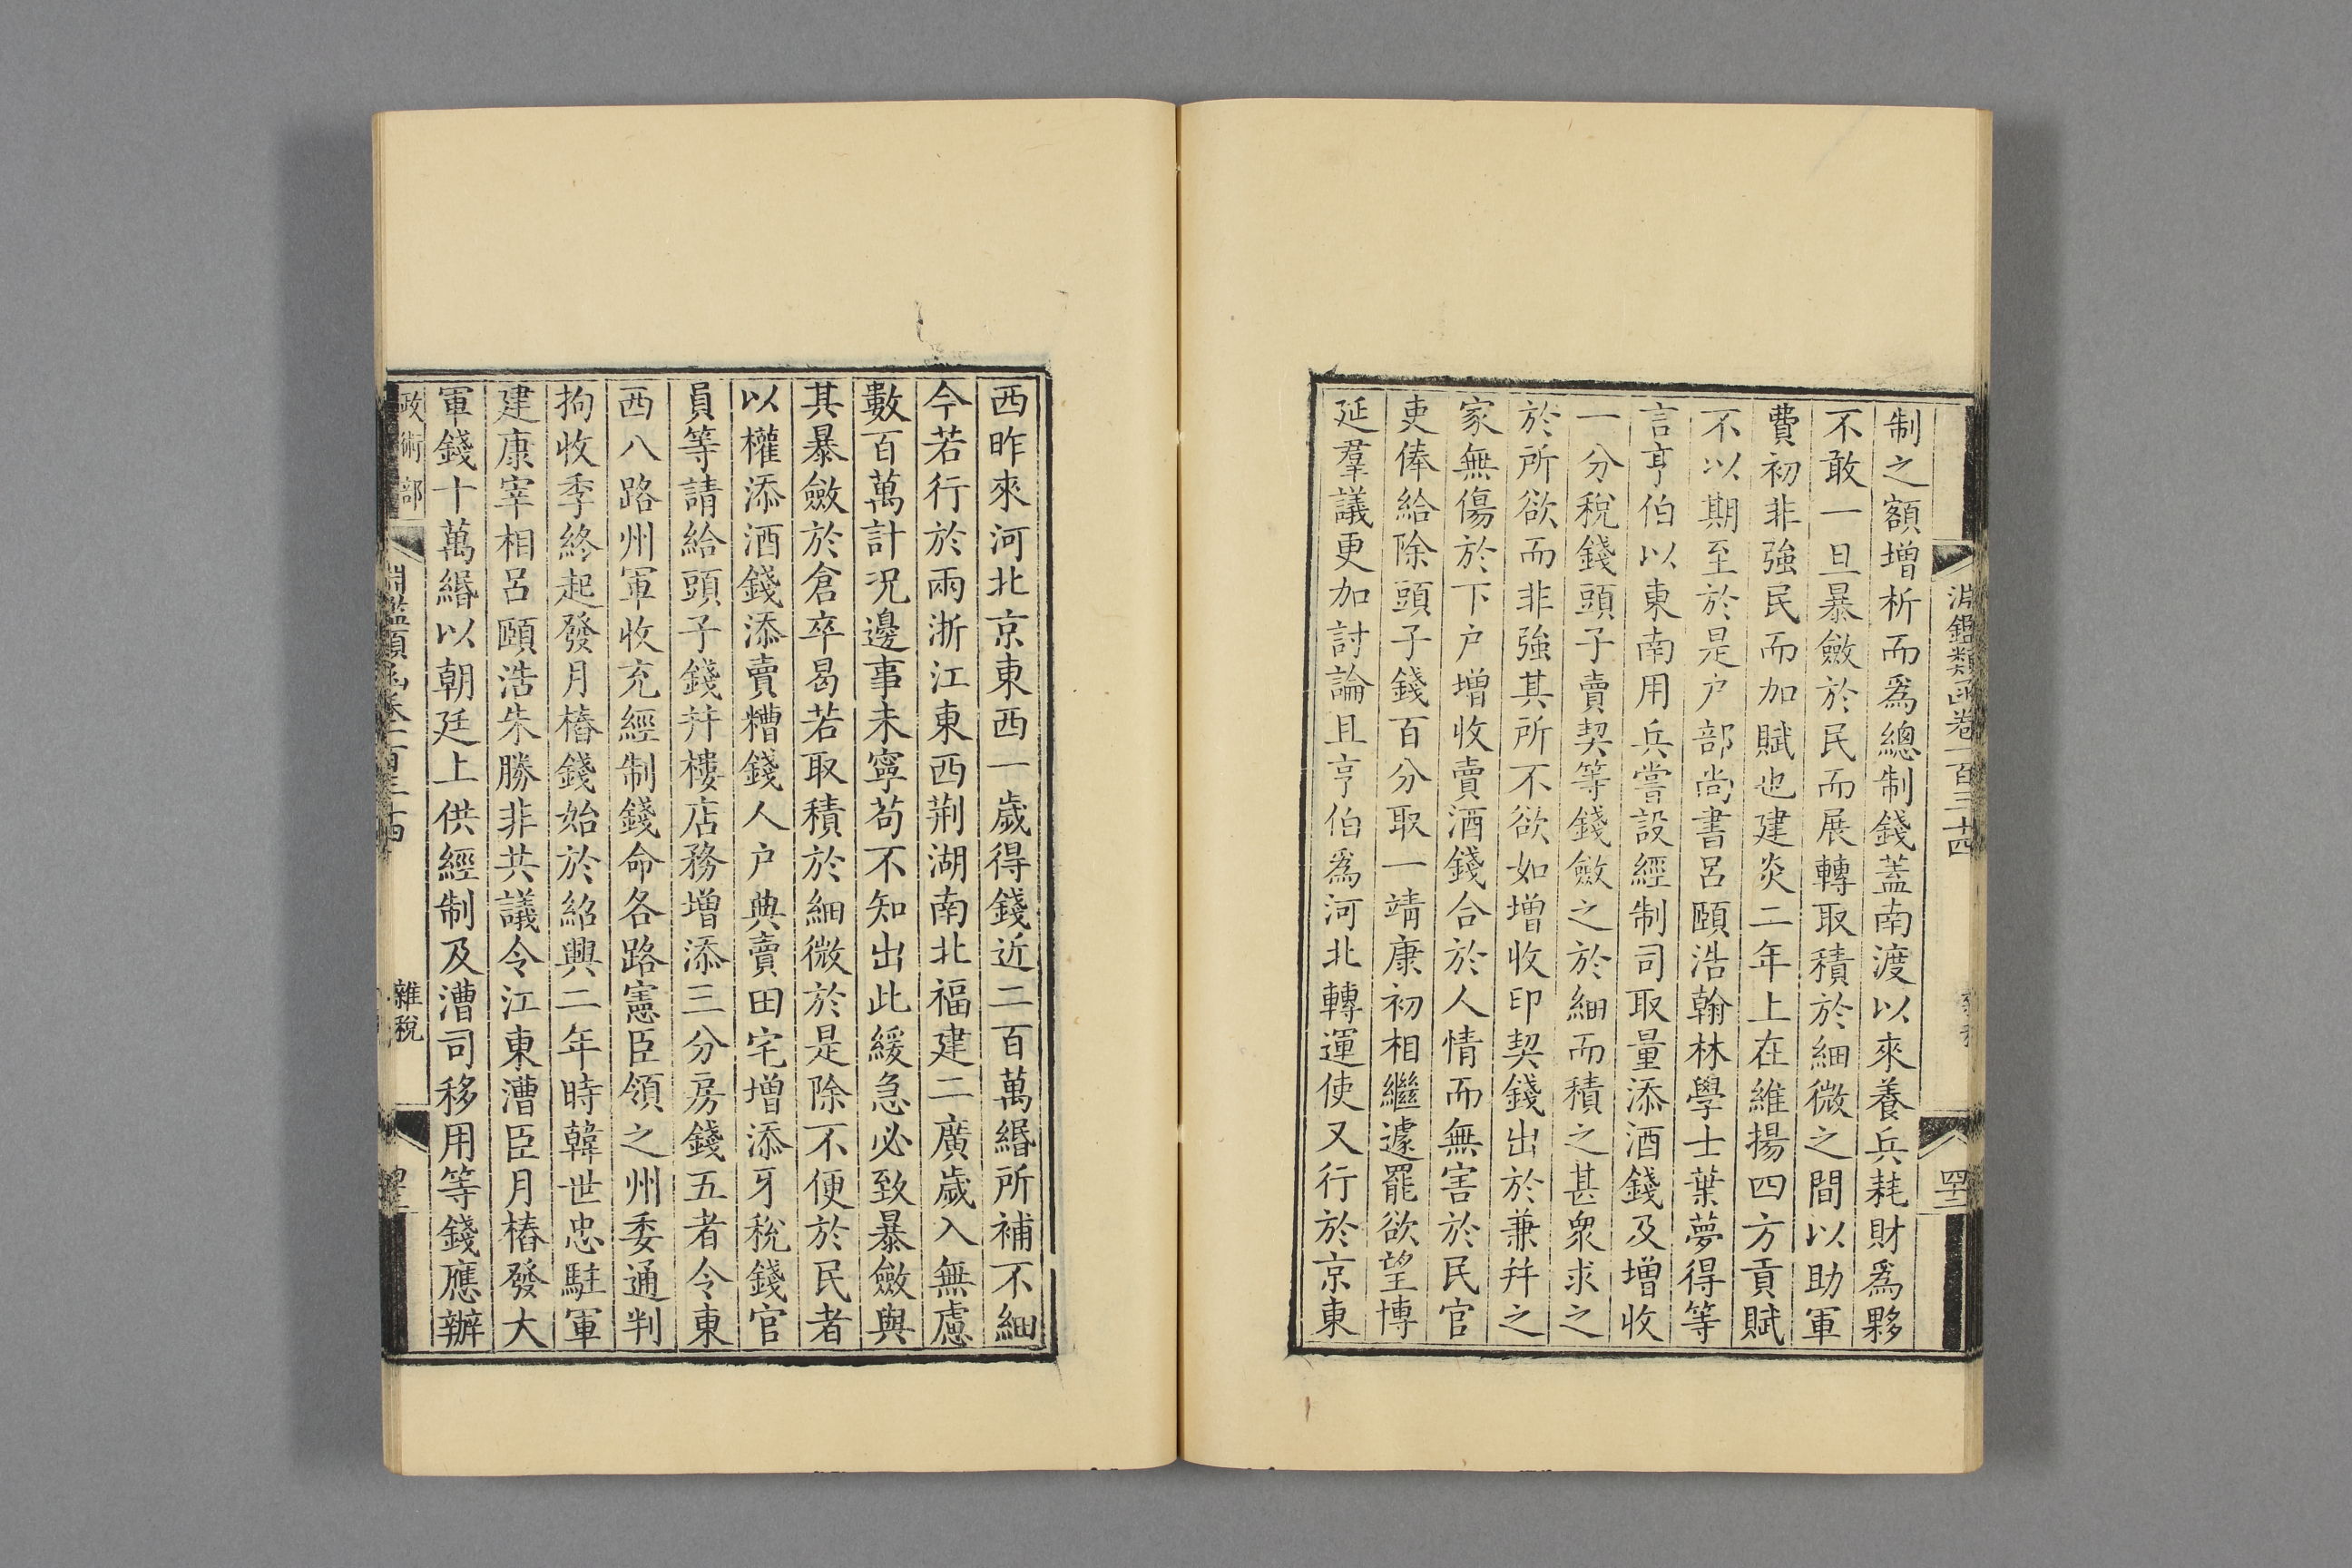 制之額增析而爲總制錢蓋南渡以來養兵耗財爲夥
不敢一旦暴斂於民而展轉取積於細微之間以助軍
費初非強民而加賦也建炎二年上在維揚四方貢賦
不以期至於是户部尚書呂頤浩翰林學士葉夢得等
言亨伯以東南用兵嘗設經制司取量添酒錢及增收
一分稅錢頭子賣契等錢斂之於細而積之甚衆求之
於所欲而非強其所不欲如增收印契錢出於兼幷之
家無傷於下户增收賣酒錢合於人情而無害於民官
吏俸給除頭子錢百分取一靖康初相繼遽罷欲望博
延羣議更加討論且亨伯爲河北轉運使又行於京東
西昨來河北京東西一歲得錢近二百萬緡所補不細
今若行於兩浙江東西荆湖南北福建二廣歲入無慮
數百萬計況邊事未寧苟不知出此緩急必致暴斂與
其暴斂於倉卒曷若取積於細微於是除不便於民者
以權添酒錢添賣糟錢人户典賣田宅增添牙稅錢官
員等請給頭子錢幷樓店務增添三分房錢五者令東
西八路州軍收充經制錢命各路憲臣領之州委通判
拘收季終起發月樁錢始於紹興二年時韓世忠駐軍
建康宰相呂頤浩朱勝非共議令江東漕臣月樁發大
軍錢十萬緡以朝廷上供經制及漕司移用等錢應辦
政術部
淵鑑類函卷一百三十四
雜稅